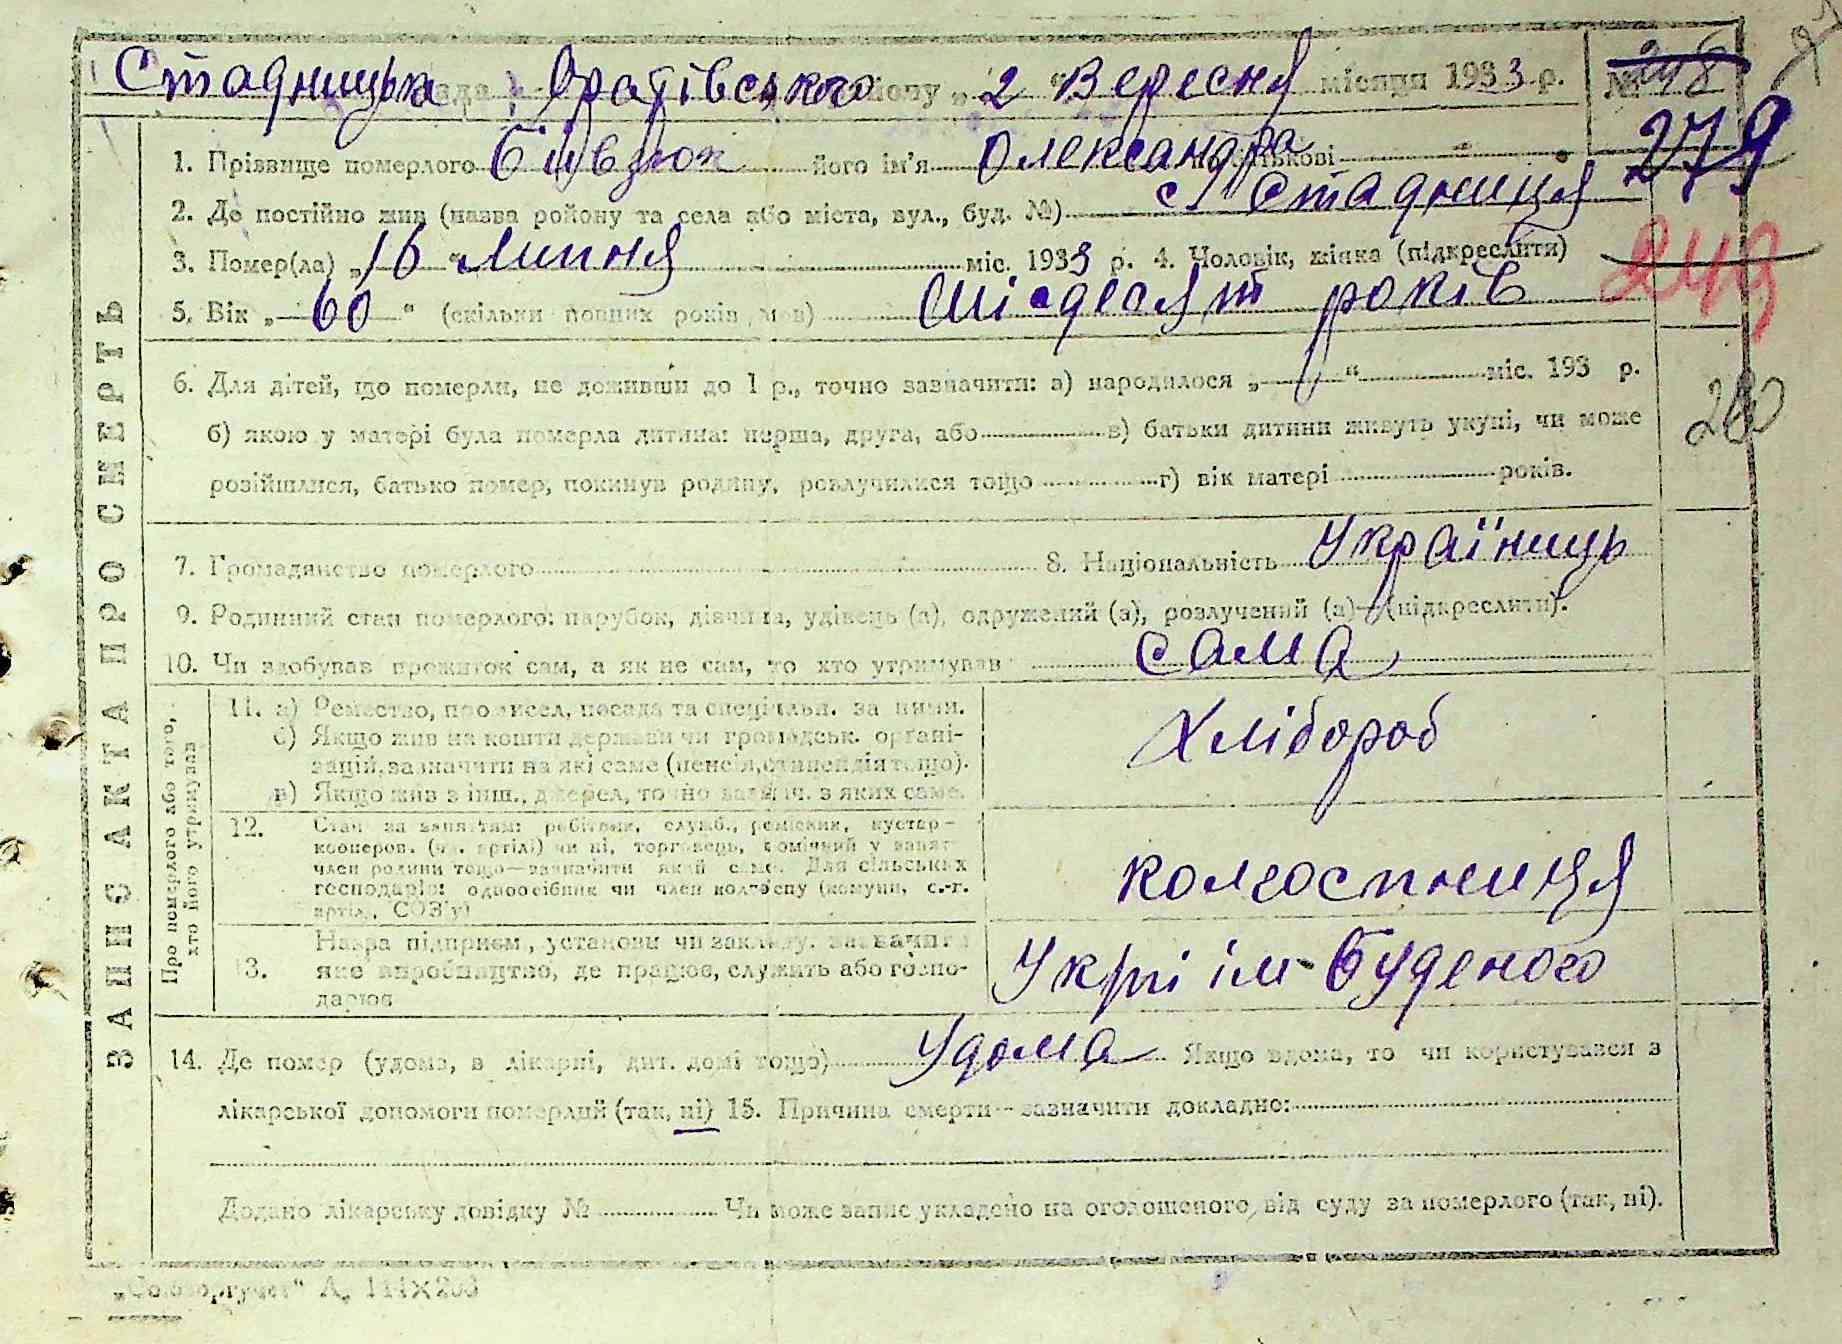 Стадницька рада, Оратівського району „2" Вересня місяця 1933 р. № 248
279
1. Прізвище померлого його ім'я Олександра по батькові
2. Де постійно жив (назва району та села або міста, вул., буд. №) с Стадниця
3. Помер(ла) „16" Липня міс. 1933 р. 4. Чоловік, жінка (підкреслити)
249
5. Вік „60" (скільки повних років мав) Шісдесят років
6. Для дітей, що померли, не доживши до 1 р., точно зазначити: а) народилося „ " міс. 193 р.
280
б) якою у матері була померла дитина: перша, друга, або в) батьки дитини живуть укупі, чи може
розійшлися, батько помер, покинув родину, розлучилися тощо г) вік матері років.
7. Громадянство померлого 8. Національність Україниць
9. Родинний стан померлого: парубок, дівчина, удівець (а), одружений (а), розлучений (а)—(підкреслити).
10. Чи здобував прожиток сам, а як не сам, то хто утримував сама
ЗАПИС АКТА ПРО СМЕРТЬ
Про померлого або того,
хто його утримував
11. а) Ремество, промисел, посада та спеціяльн. за ними.
б) Якщо жив на кошти держави чи громадськ. органі-
зацій, зазначити на які саме (пенсія, стипендія тощо).
в) Якщо жив з інш., джерел, точно зазнач. з яких саме.
Хлібороб
12. Стан за заняттям: робітник, служб., ремісник, кустар-
кооперов. (чл. артілі) чи ні, торговець, помічний у занят.
член родини тощо—зазначити який саме. Для сільських
господарів: одноосібник чи член колгоспу (комуни, с.-г.
артілі, СОЗ'у)
колгоспниця
13. Назва підприєм., установи чи закладу, зазначити
яке виробництво, де працює, служить або госпо-
дарює
ім Буденого
14. Де помер (удома, в лікарні, дит. домі тощо) Удома Якщо вдома, то чи користувався з
лікарської допомоги померлий (так, ні) 15. Причина смерти—зазначити докладно:
Додано лікарську довідку № Чи може запис укладено на оголошеного від суду за померлого (так, ні).
„Союзоргучет" А